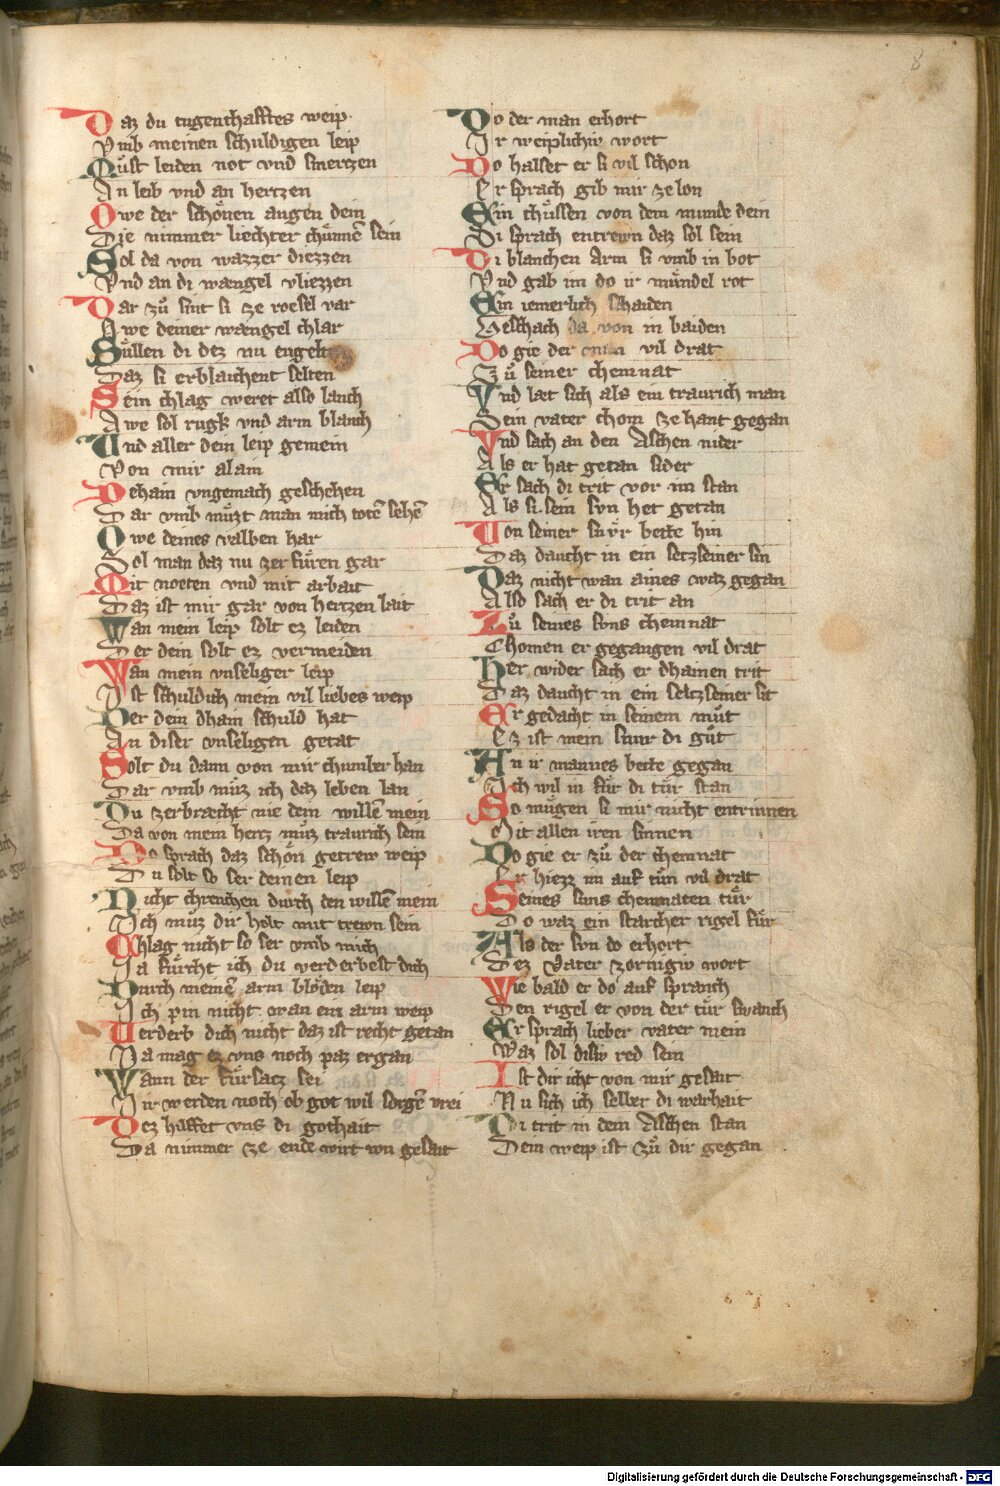 8
Daz du tugenthafftes weip
Vmb meinen schuldigen leip
Můst leiden not vnd smertzen
An leib vnd an hertzen
Owe der schoͤnen augen dein
Die nimmer liechter chuͤnnē sein
Sol da von wazzer diezzen
Vnd an di wængel vliezzen
Dar zů sint si ze roeselvar
Awe deiner wængel chlar
Suͤllen di dez nu engelten
Daz si erblaichent selten
Sein chlag weret also lanch
Awe sol rugk vnd arm blanch
Vnd aller dein leip gemein
Von mir alain
Dehain vngemach geschehen
Dar vmb muͤzt man mich totē sehē
Owe deines valben har
Sol man daz nu zerfuͤren gar
Mit noeten vnd mit arbait
Daz ist mir gar von hertzen lait
Wan mein leip solt ez leiden
Der dein solt ez vermeiden
Wan mein vnseliger leip
Ist schuldich mein vil liebes weip
Der dein dhain schuld hat
An diser vnseligen getat
Solt du dann von mir chumber han
Dar vmb můz ich daz leben lan
Du zerbracht nie dein willē mein
Da von mein hertz můz traurich sein
Do sprach daz schoͤn getrew weip
Du solt so ser deinen leip
Nicht chrenchen durch den willē mein
Ich můz dir holt mit trewn sein
Chlag nicht so ser vmb mich
Ja fuͤrcht ich du verderbest dich
Durch meinē arm bloͤden leip
Ich pin nicht wan ein arm weip
Verderb dich nicht daz ist recht getan
Ja mag ez vns noch paz ergan
Wann der fuͤrsacz sei
Wir werden noch ob got wil sorgē vrei
Dez hilffet vns di gothait
Da nimmer ze ende wirt von gesait
Do der man erhort
Ir weiplichiv wort
Do halset er si vil schon
Er sprach gib mir ze lon
Ein chuͤssen von dem munde dein
Si sprach entrewn daz sol sein
Di blanchen arm si vmb in bot
Vnd gab im do ir muͤndel rot
Ein iemerlich schaiden
Geschach da von in baiden
Do gie der man vil drat
Zů seiner chemnat
Vnd læt sich als ein traurich man
Sein vater chom ze hant gegan
Vnd sach an den Aschen nider
Als er hat getan sider
Er sach di trit vor im stan
Als si sein svn het getan
Von seiner snvͤr bette hin
Daz daucht in ein seltzseiner sin
Daz nicht wan aines waz gegan
Also sach er di trit an
Zů seines svns chemnat
Chomen er gegangen vil drat
Her wider sach er dhainen trit
Daz daucht in ein seltzseiner sit
Er gedacht in seinem můt
Ez ist mein snur di gůt
An ir mannes bette gegan
Ich wil in fuͤr di tuͤr stan
So muͤgen si mir nicht entrinnen
Mit allen iren sinnen
Do gie er zů der chemnat
Er hiezz im auf tůn vil drat
Seines suns chemnaten tuͤr
Do waz ein starcher rigel fuͤr
Als der svn do erhort
Dez Vater zornigiv wort
Wie bald er do auf spranch
Den rigel er von der tuͤr swanch
Er sprach lieber vater mein
Waz sol disiv red sein
Ist dir icht von mir gesait
Nu sich ich selber di warhait
Di trit in dem Aschen stan
Dein weip ist zů dir gegan
Digitalisierung gefördert durch die Deutsche Forschungsgemeinschaft - DFG